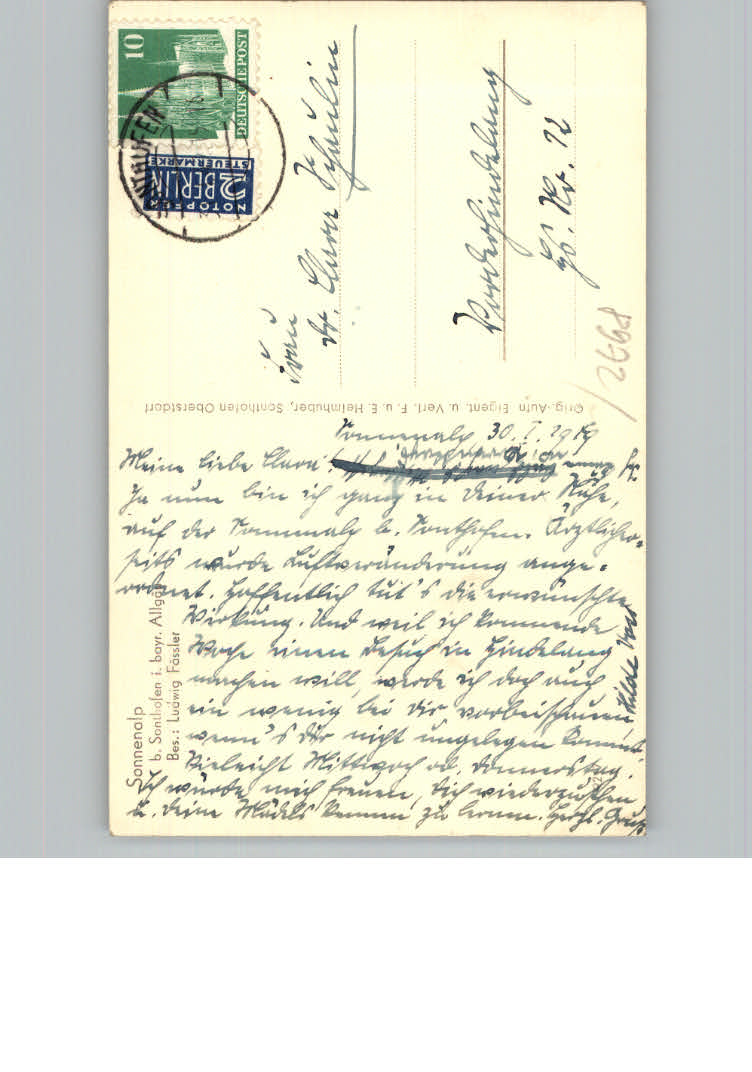 10
DEUTSCHE POST
NOTOPFER
2 BERLIN
STEUERMARKE
SONTHOFEN
Frau
Dr. Clara Schäulin
Vorderhindelang
Hs. Nr. 72
Orig.-Aufn. Eigent. u. Verl. F. u. E. Heimhuber, Sonthofen Oberstdorf
Sonnenalp 30. I. 1949
Meine liebe Clara!
Ja nun bin ich ganz in Deiner Nähe,
auf der Sonnenalp b. Sonthofen. Ärztlicher-
seits wurde Luftveränderung ange-
ordnet. Hoffentlich tut's die erwünschte
Wirkung. Und weil ich kommende
Woche einen Besuch in Hindelang
machen will, werde ich doch auch
ein wenig bei Dir vorbeischauen,
wenn's Dir nicht ungelegen kommt.
Vielleicht Mittwoch od. Donnerstag.
Ich würde mich freuen, Dich wiederzusehen
u. Deine Mädels kennen zu lernen. Herzl. Gruß
Hilde
Sonnenalp
b. Sonthofen i. bayr. Allgäu
Bes.: Ludwig Fässler